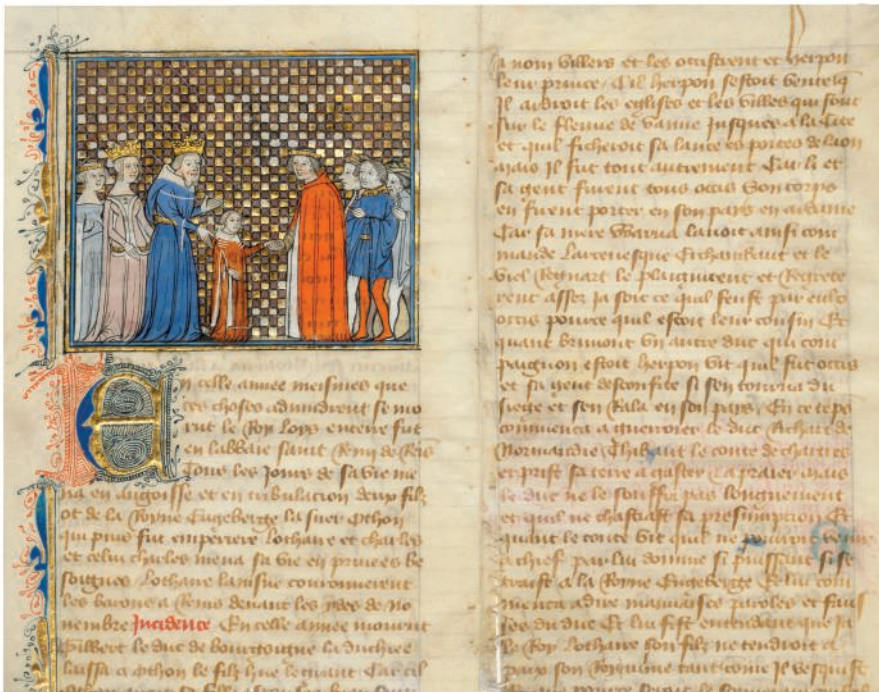 En celle annee meismes que
ces choses advindrent se mo
rut le Roy loys enterre fut
en labbaie saint Remi de Reis
Tous les jours de sa vie me
na en angoisse et en tribulacion deux filz
ot de la Royne Engeberge la suer Othon
qui puis fut emperere Lothaire et charles
et celui charles mena sa vie en privees be
songnes Lothaire laisne couronnerent
les barons a Reins devant les ydes de no
nembre Incidence En celle annee mourut
Gillebert le duc de bourgoigne la duchiee
laissa a Othon le filz hue le grant Car cil
a nom villers et les occistrent et herpon
leur prince Cil herpon sestoit vente q
Il ardroit les eglises et les villes qui sont
sur le fleuve de Jusques a la Cite
et quil ficheroit sa lance es portes de laon
mais Il fut tout autrement Car li et
sa gent furent tous occis Son corps
en firent porter en son pays en
Car sa mere lavoit ainsi com
mande Larcevesque et le
viel Regnart le plaignirent et Regrete
rent assez ja soit ce quil feust par eulx
occis pource quil estoit leur cousin Et
quant brimont un autre duc qui com
paignon estoit herpon vit quil fut occis
et sa gent desconfite si sen tourna du
siege et sen Rala en son pays En ce teps
commenca a guerroier le duc Richart de
Normandie Thibaut le conte de chartres
et prist sa terre a gaster a praier mais
le duc ne le souffri pas longuement
et quil ne chastiast sa presumpcion Et
quant le conte vit quil ne pourroit venir
a chief par lui donme si puissant si se
traist a la Royne Engeberge Et lui com
menca a dire mauvaises paroles et faus
ses du duc Et lui fist entendant que ja
le Roy Lothaire son filz ne tendroit a
paix son Royaume tant come Il vesquist